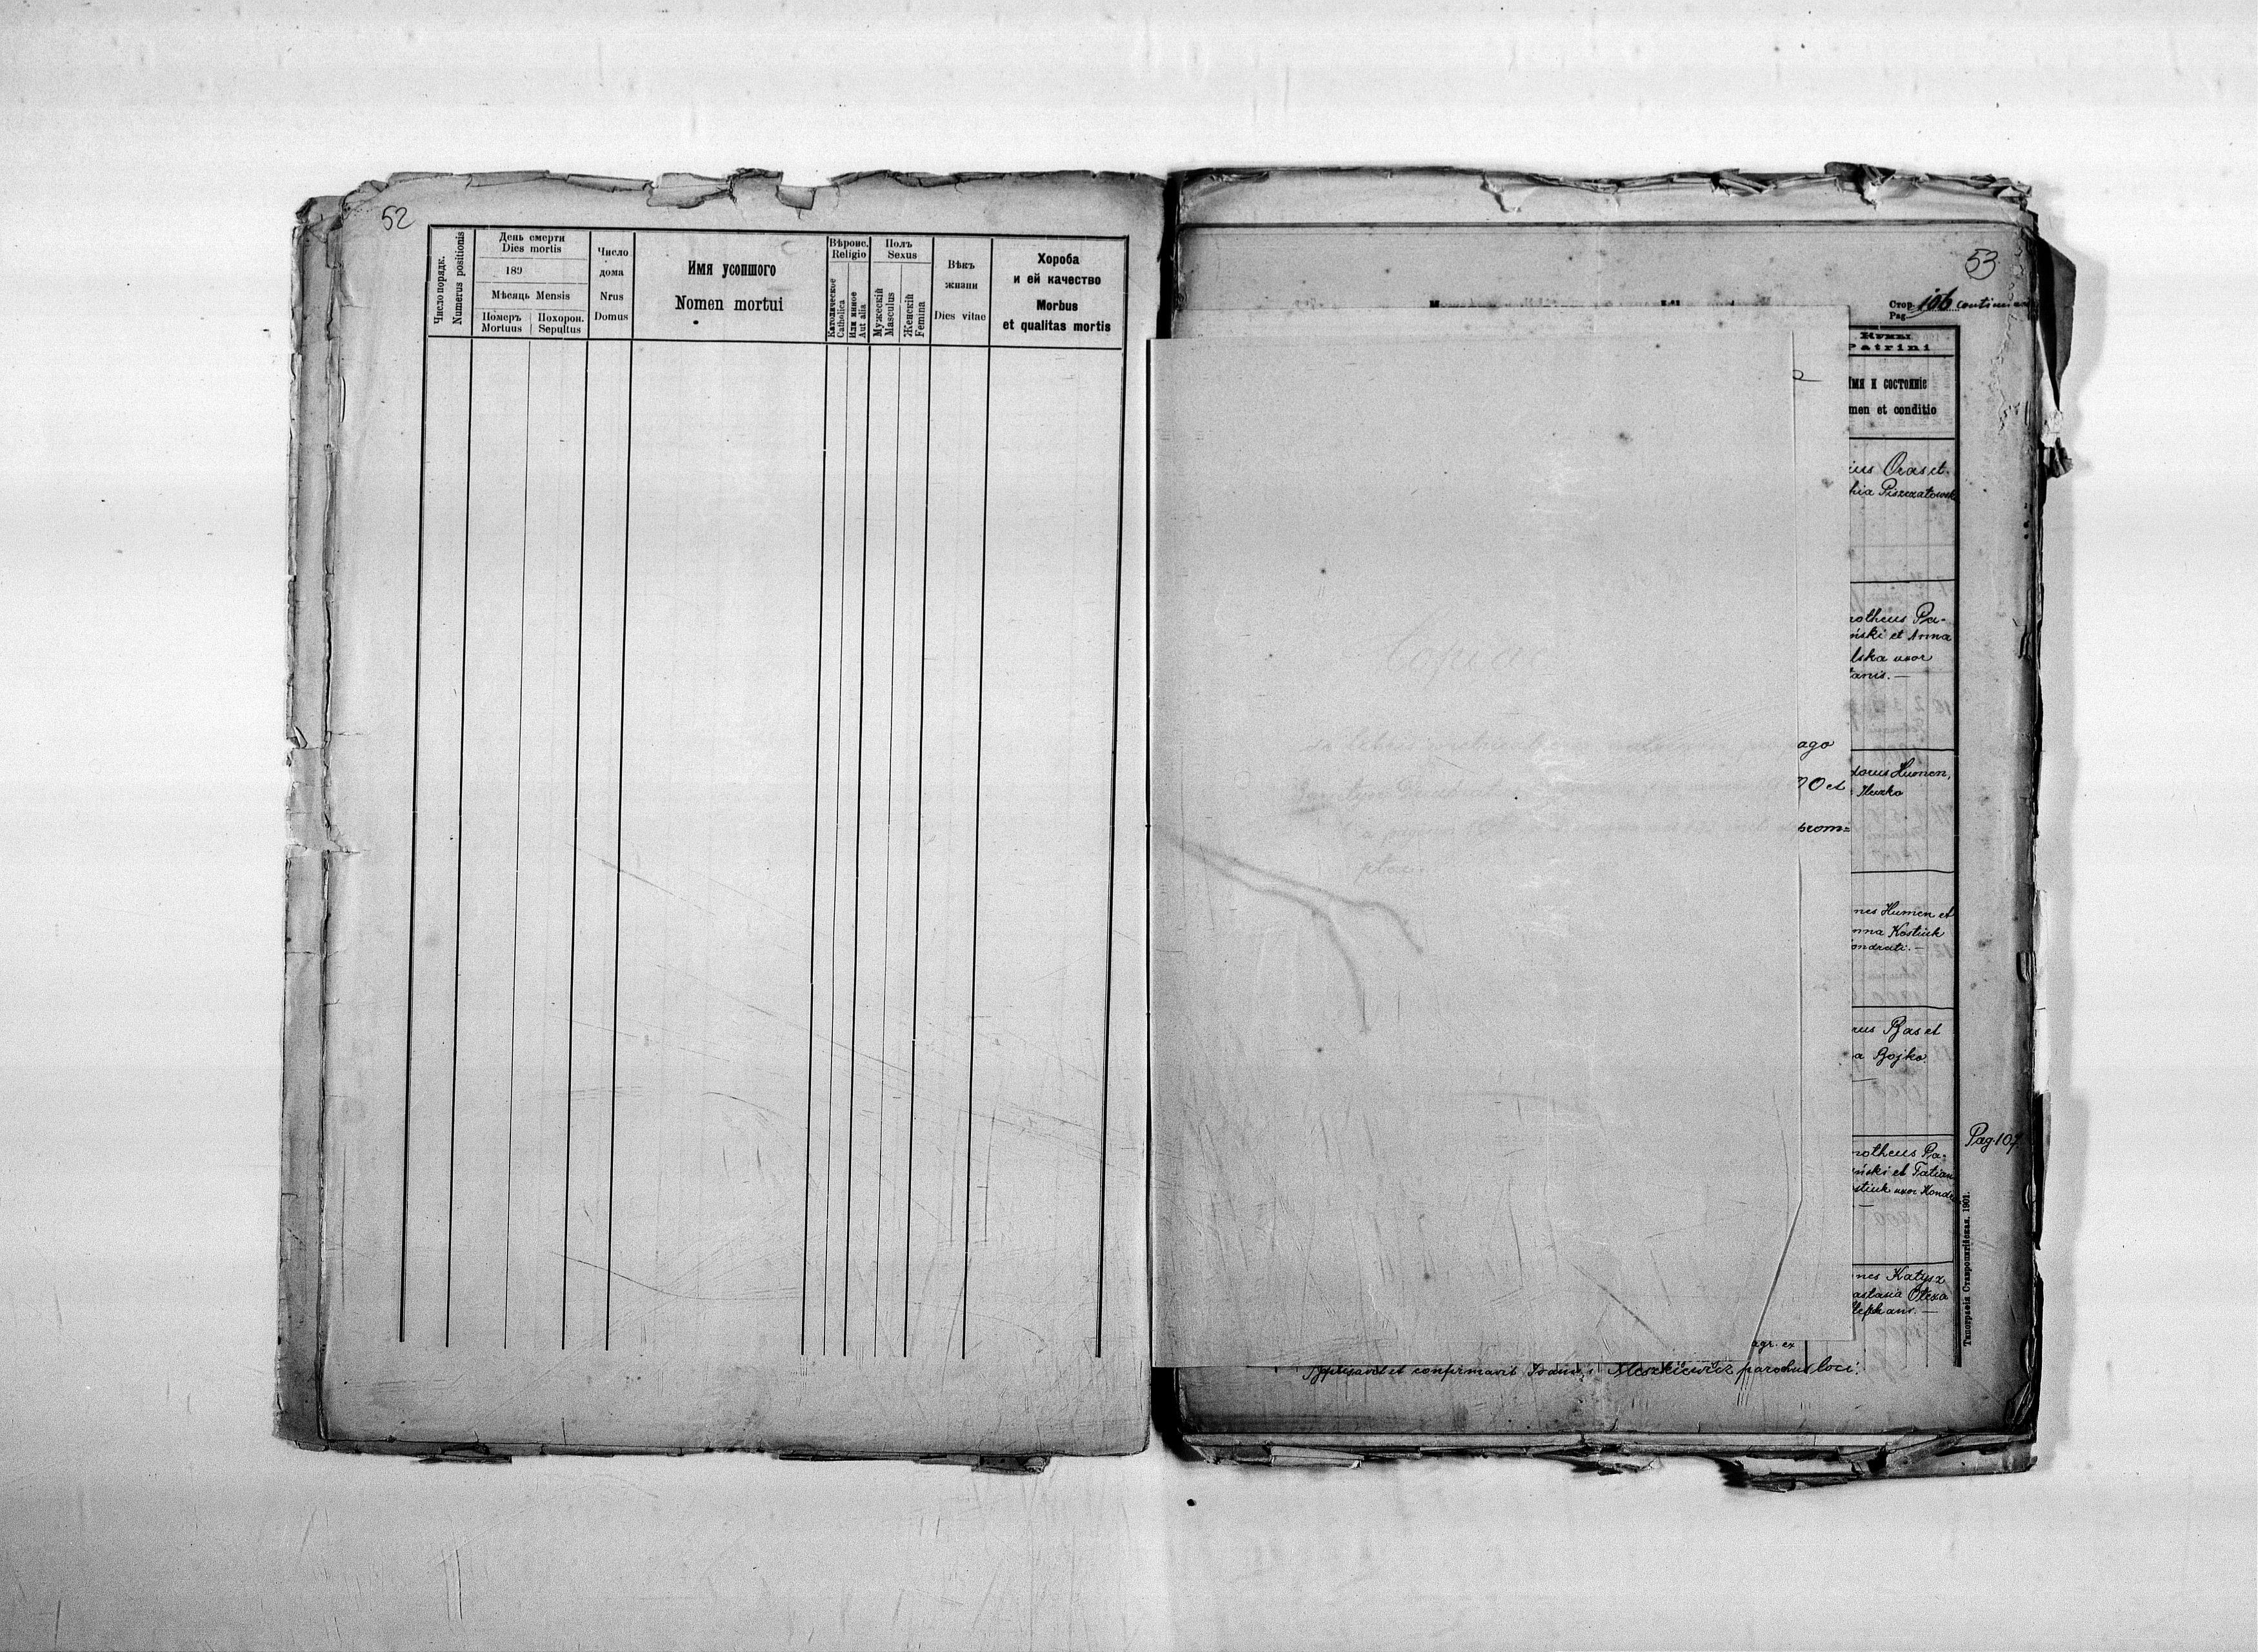 52
Число порядк.
Numerus positionis
День смерти
Dies mortis
189
Мѣсяць Mensis
Померъ
Mortuus
Похорон.
Sepultus
Число
дома
Nrus
Domus
Имя усопшого
Nomen mortui
Вѣроис.
Religio
Католическое
Catholica
Или инное
Aut alia
Полъ
Sexus
Мужескій
Masculus
Женскій
Femina
Вѣкъ
жизни
Dies vitae
Хороба
и ей качество
Morbus
et qualitas mortis
53
Стор.
Pag. 106 continuan
Кумы
Patrini
Имя и состояніе
men et conditio
ius Oras et
hia Piszczatowsk
otheus Pa-
ński et Anna
lska uxor
anis. —
dorus Humen,
Iluzko
nes Humen et
nna Kostiuk
ondrati. —
rus Bas et
a Bojko
—
otheus Pa-
ński et Tatian
stiuk uxor Kond
—
nes Katysz
astasia Olexa
Stephani. —
Pag. 107
Типографія Ставропигійская. 1901.
Copiae
ago
0 et
prom=
agr. ex
Baptisavit et confirmavit Meszkiewicz parochus loci.